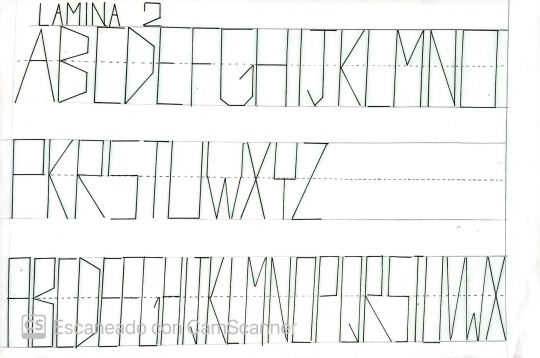 LAMINA 2
ABCDEFGHIJKLMNO
PKRSTUWXYZ
ABCDEFGHIJKLMNOPQRSTUVWX
CS Escaneado con CamScanner